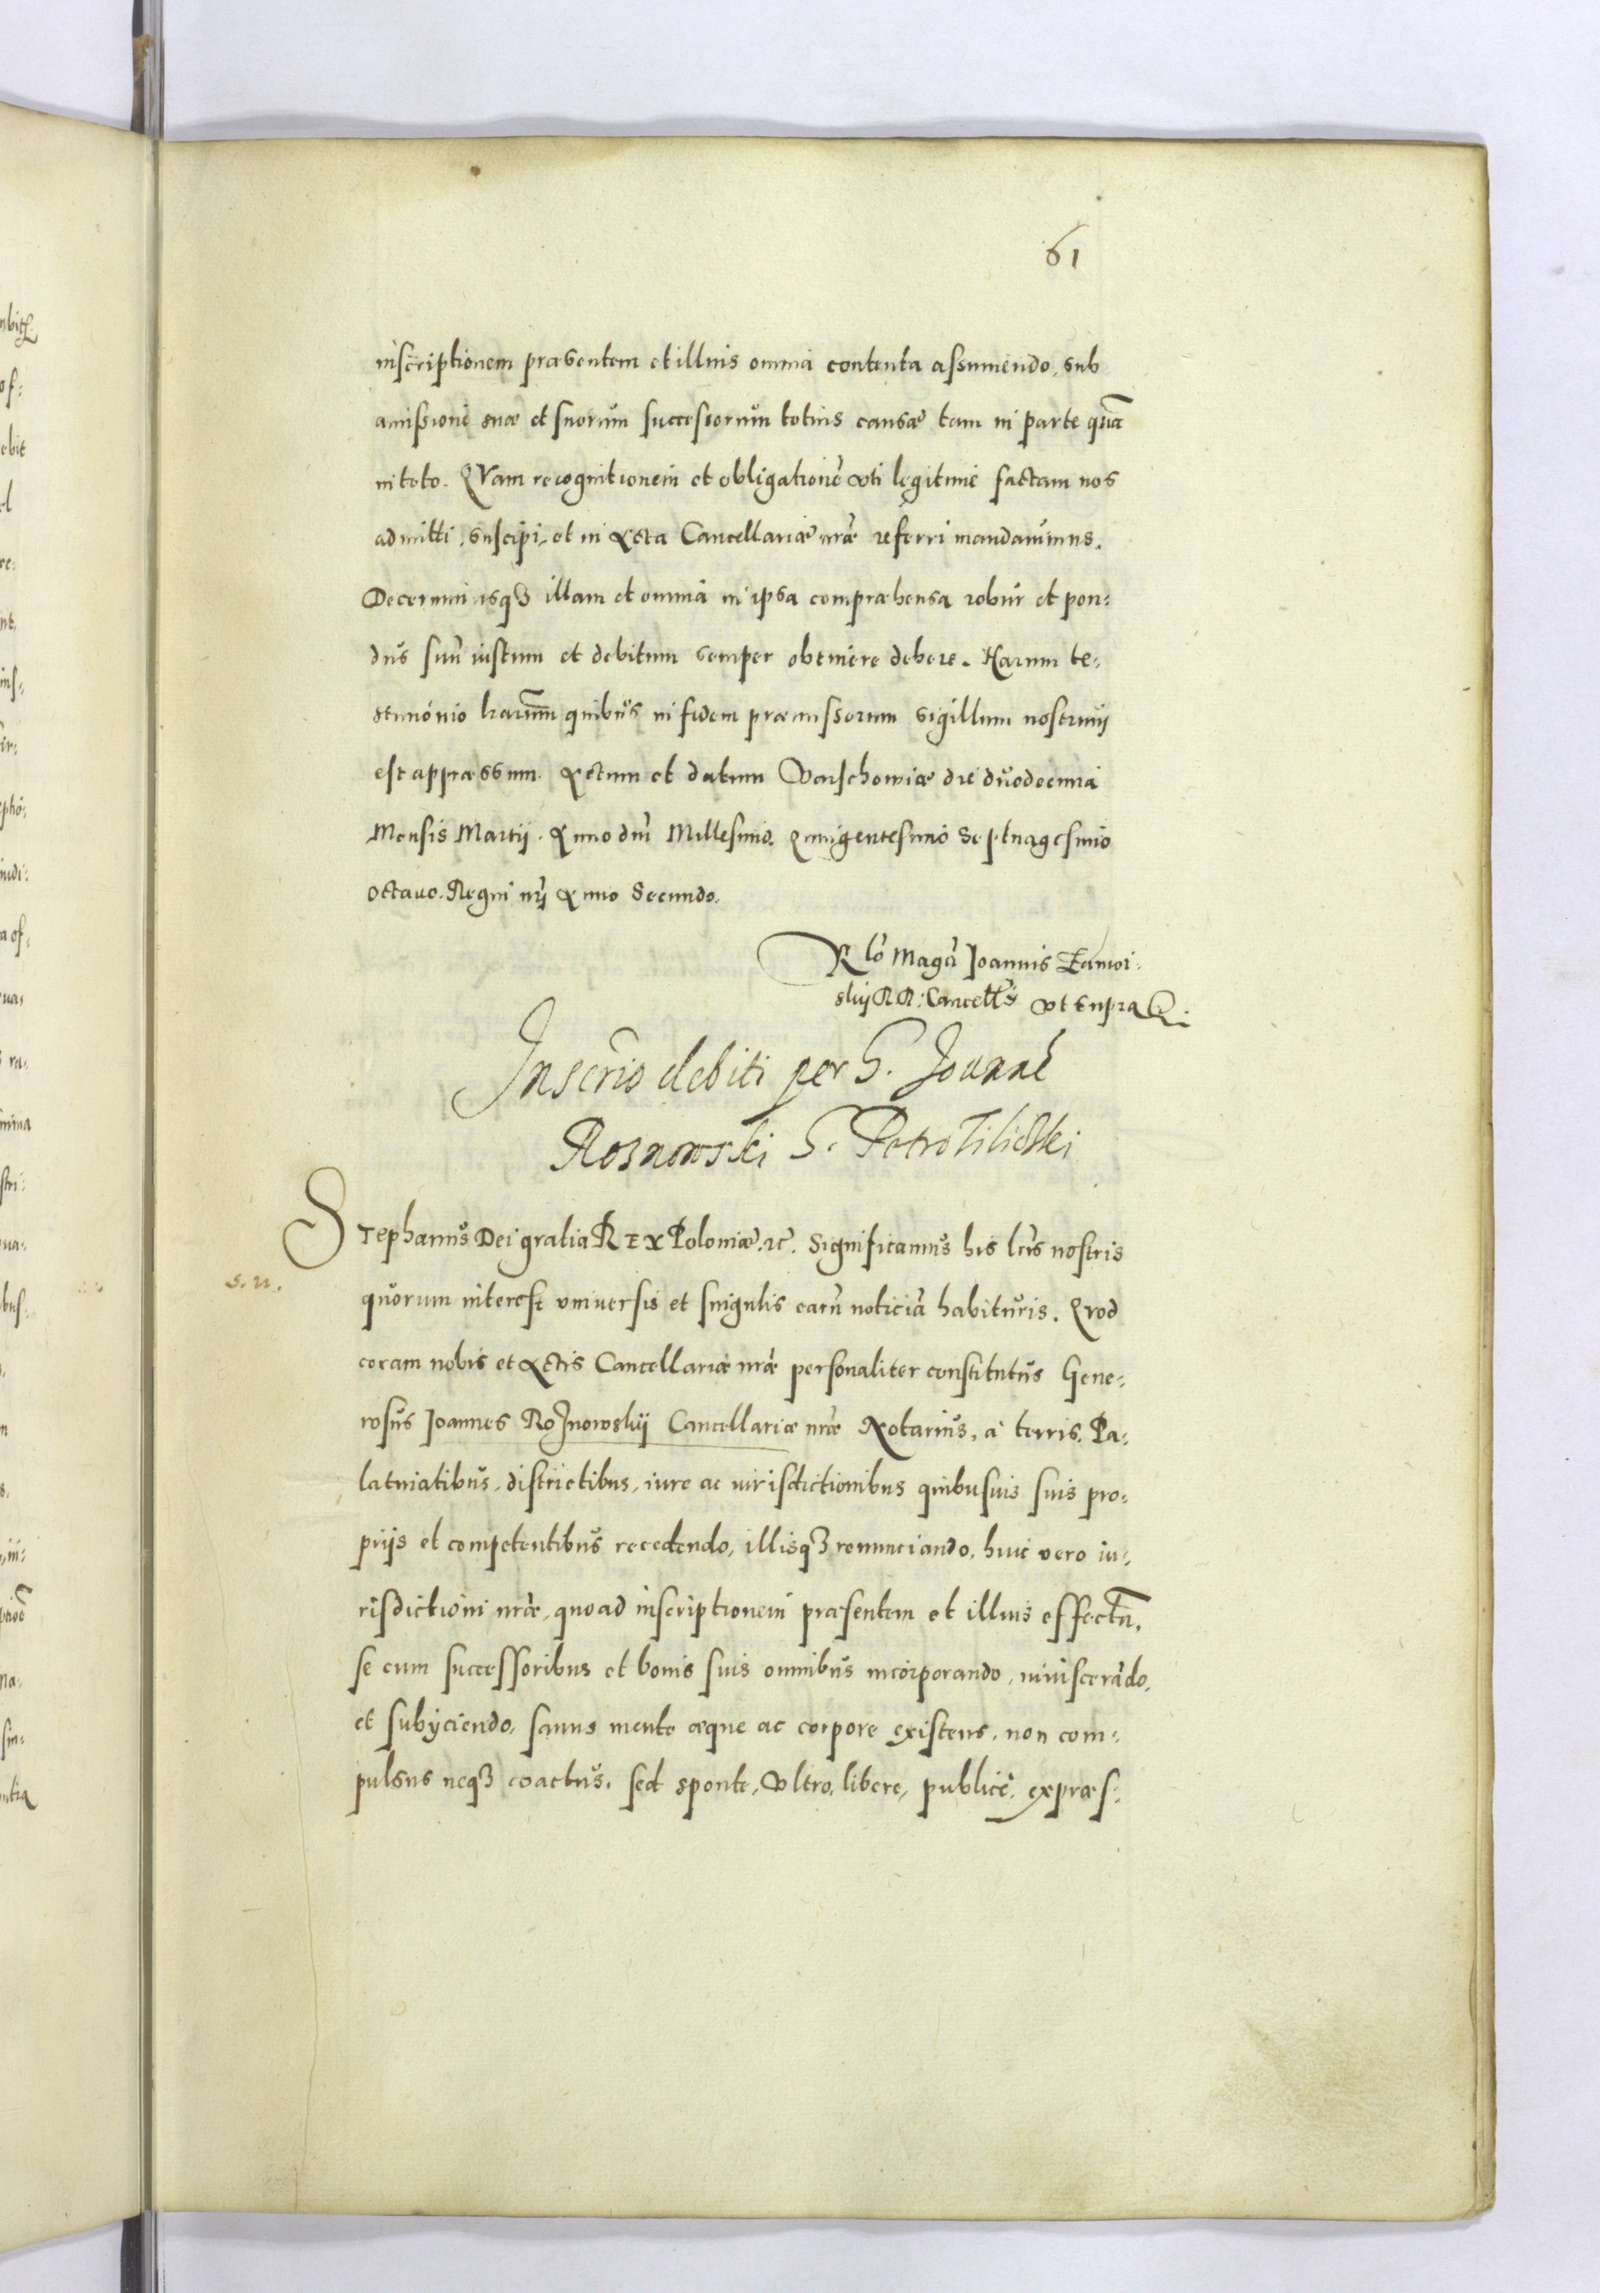 61
inscriptionem præsentem et illius omnia contenta assumendo, sub
amissione suæ et suorum successorum totius causæ tam in parte quā
in toto. QVam recognitionem et obligationē vti legitime factam nos
admitti, suscipi, et in Acta Cancellariæ nr̄æ referri mandauimus.
Decernimusqȝ illam et omnia in ipsa compræhensa robur et pon:
dus suū iustum et debitum semper obtinere debere. Harum te:
stimonio lrarum quibus in fidem præmissorum sigillum nostrum
est appræssum. Actum et datum Varschowiæ die duodecima
Mensis Martij. Anno dnī Millesimo Quingentesimo Septuagesimo
octauo. Regni nrī Anno Secundo.
Rlō Magci Joannis Zamoi:
skij RR: Cancell̄s vt supra
Inscrio debiti per G. Joannē
Rosnowski G. Petro Tilicki
Stephanus Dei gratia REX Poloniæ. ꝛc̄. Significamus his lrīs nostris
s. n.
quorum interest vniuersis et singulis earū noticiā habituris. Quod
coram nobis et Actis Cancellariæ nr̄æ personaliter constitutus Gene:
rosus Joannes Roznowskij Cancellariæ nr̄æ Notarius, a terris, Pa:
latinatibus, districtibus, iure ac iurisdictionibus quibusuis suis pro:
prijs et competentibus recedendo, illisqȝ renunciando, huic vero iu:
risdictioni nr̄æ, quoad inscriptionem præsentem et illius effectū,
se cum successoribus et bonis suis omnibus incorporando, inuiscerādo,
et subijciendo, sanus mente æque ac corpore existens, non com:
pulsus neqȝ coactus, sed sponte, vltro, libere, publice, expræs: